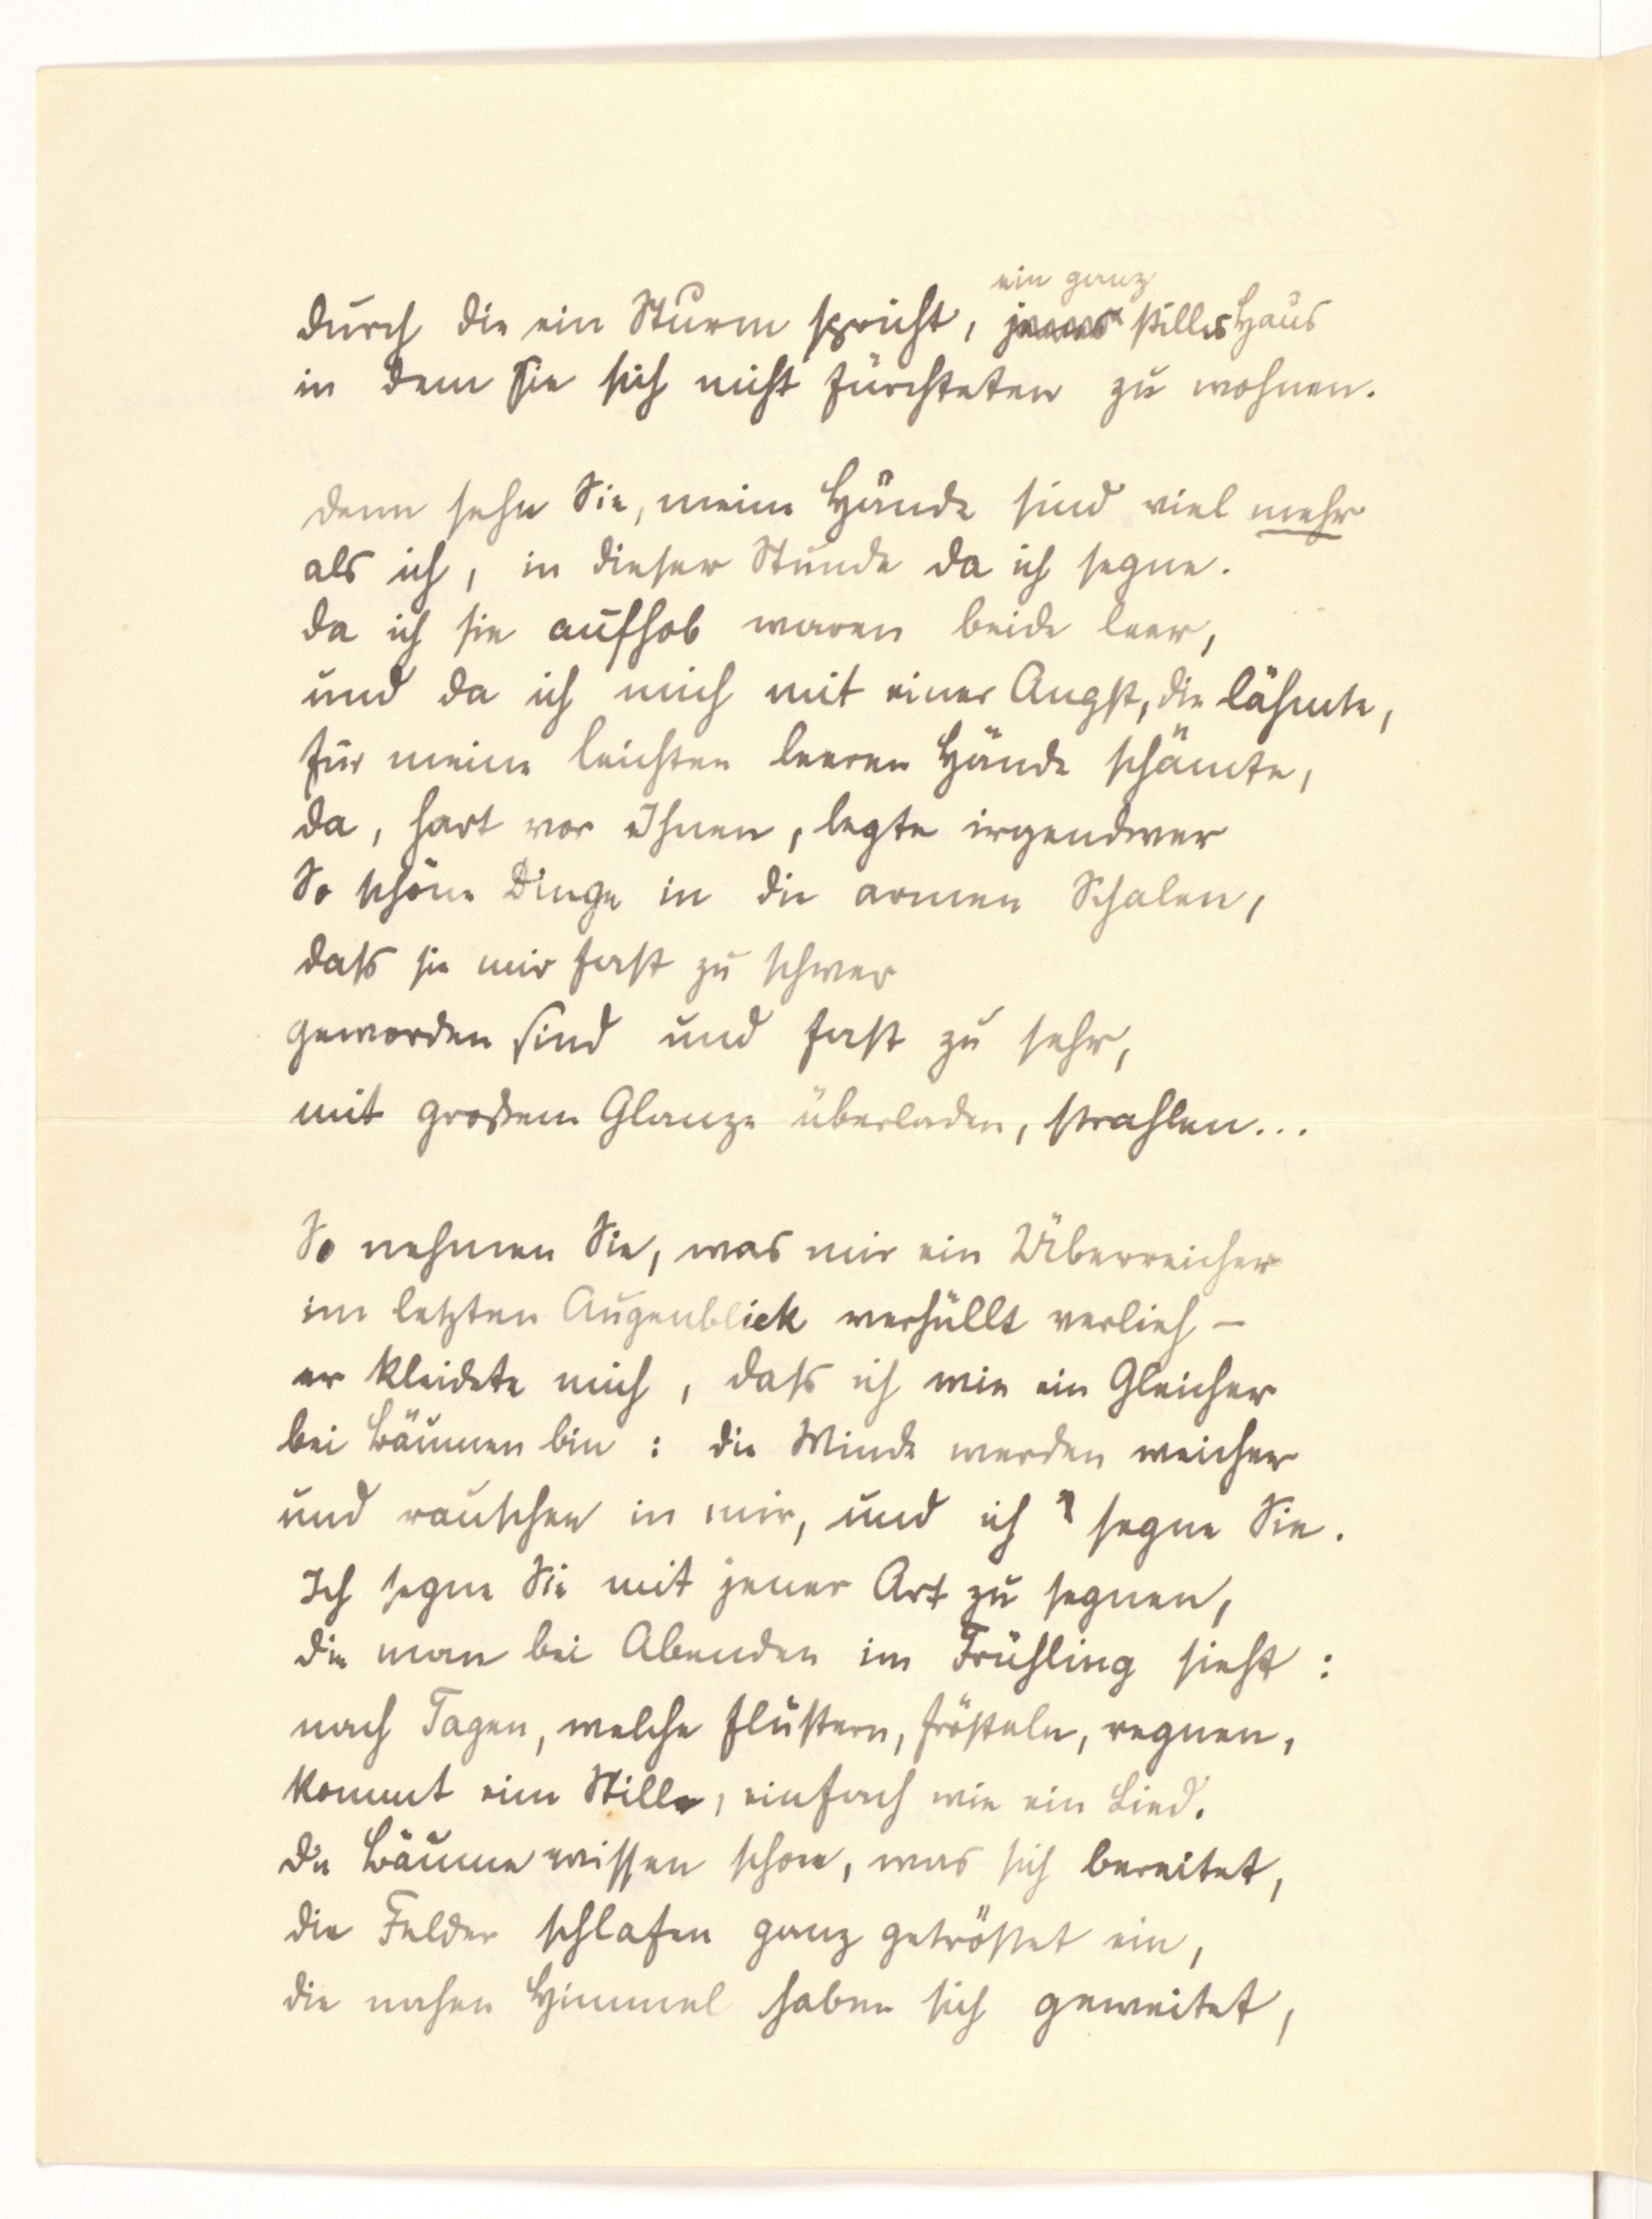 ein ganz
durch die ein Sturm spricht, stilles Haus
in dem Sie sich nicht fürchteten zu wohnen.
denn sehn Sie, meine Hände sind viel mehr
als ich, in dieser Stunde da ich segne.
da ich sie aufhob waren beide leer,
und da ich mich mit einer Angst, die lähmte,
für meine leichten leeren Hände schämte,
da, hart vor Ihnen, legte irgendwer
So schöne Dinge in die armen Schalen,
dass sie mir fast zu schwer
geworden sind und fast zu sehr,
mit großem Glanze überladen, strahlen...
So nehmen Sie, was mir ein Überreicher
im letzten Augenblick verhüllt verlieh –
er kleidete mich, dass ich wie ein Gleicher
bei Bäumen bin: die Winde werden weicher
und rauschen in mir, und ich segne Sie.
Ich segne Sie mit jener Art zu segnen,
die man bei Abenden im Frühling sieht:
nach Tagen, welche flüstern, frösteln, regnen,
kommt eine Stille, einfach wie ein Lied.
Die Bäume wissen schon, was sich bereitet,
die Felder schlafen ganz getröstet ein,
die nahen Himmel haben sich geweitet,